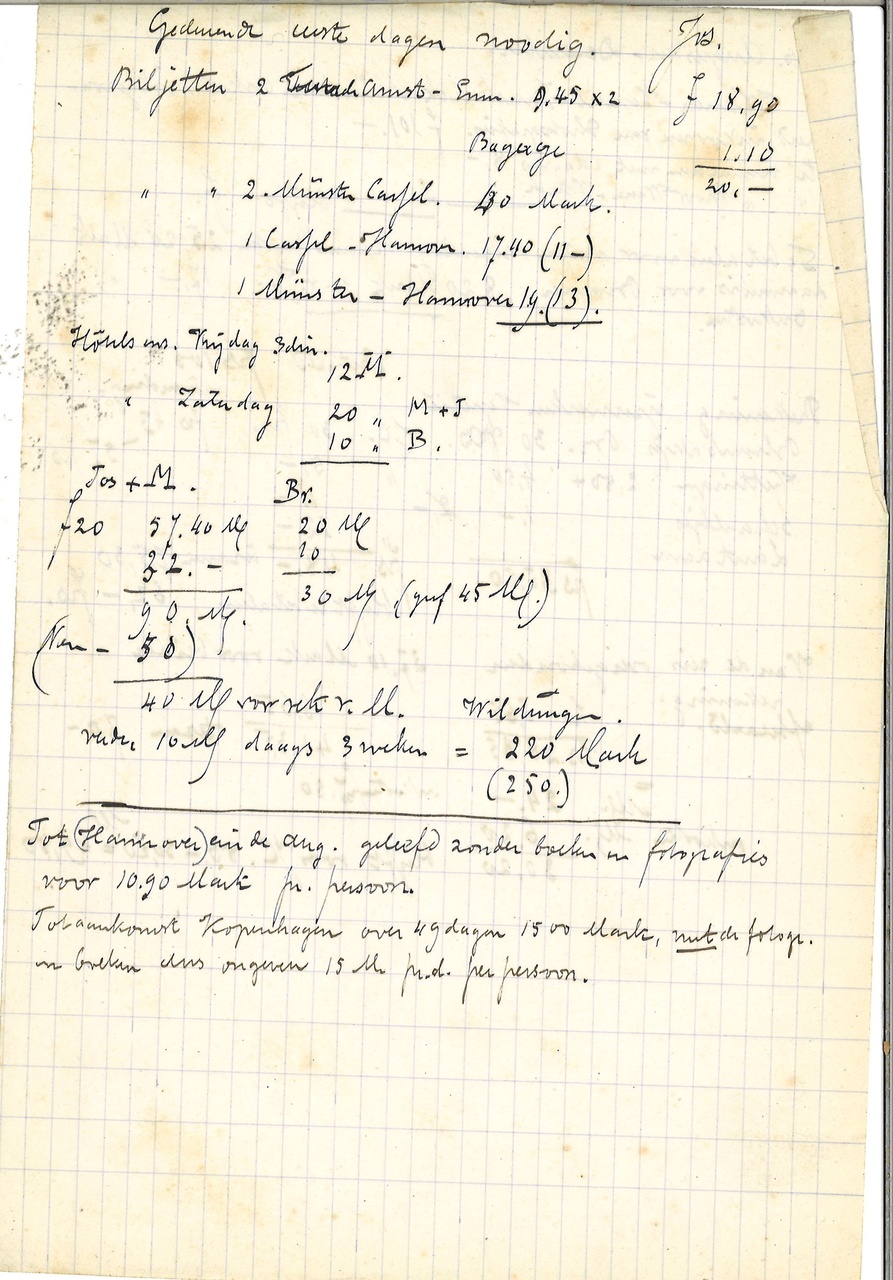 Gedurende eerste dagen noodig. Jos.
Biljetten 2 Amst - Emm. 9.45 x 2 f 18,90
Bagage 1.10
20,—
" " 2. Münster Cassel. 30 Mark.
1 Cassel - Hannov. 17.40 (11-)
1 Münster - Hannover 19. (13).
Hôtels enz. Vrijdag 3 din. 12 M.
" Zaterdag 20 " M + J
10 " B.
Jos + M. Br.
f 20 57.40 M 20 M
32.- 10
90. M. 30 M (gef 45 M.)
(Van - 50)
40 M voor rek v. M. Wildungen.
verder 10 M daags 3 weken = 220 Mark
(250.)
Tot (Hannover) einde Aug. geleefd zonder boeken en fotografies
voor 10.90 Mark pr. persoon.
Tot aankomst Kopenhagen over 49 dagen 1500 Mark, met de fotogr.
en boeken dus ongeveer 15 M. pr.d. per persoon.